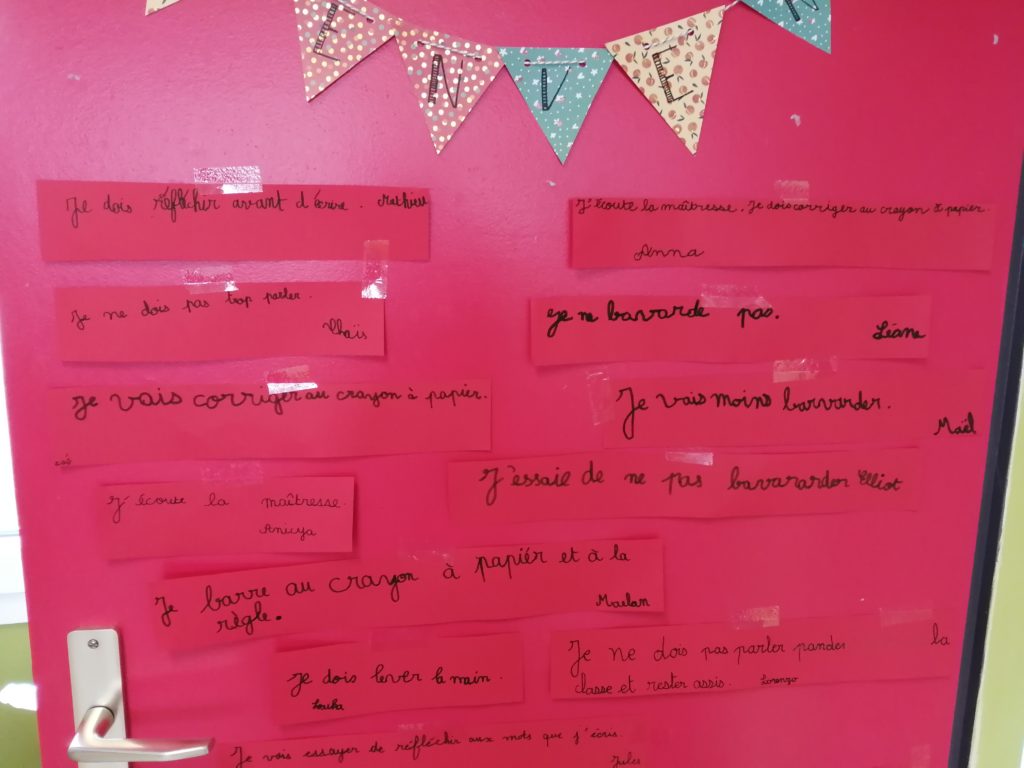 E N V E
Je dois réfléchir avant d'écrire. Mathieu
J'écoute la maîtresse. Je dois corriger au crayon à papier.
Anna
Je ne dois pas trop parler.
Thaïs
Je ne bavarde pas.
Léane
Je vais corriger au crayon à papier.
Je vais moins barvarder.
Maël
J'écoute la maîtresse.
J'essaie de ne pas bavararder Elliot
Je barre au crayon à papiér et à la
règle.
Maelan
Je dois lever la main.
Je ne dois pas parler pandes la
classe et rester assis. Lorenzo
Je vais essayer de réfléchir aux mots que j'écris.
Jules